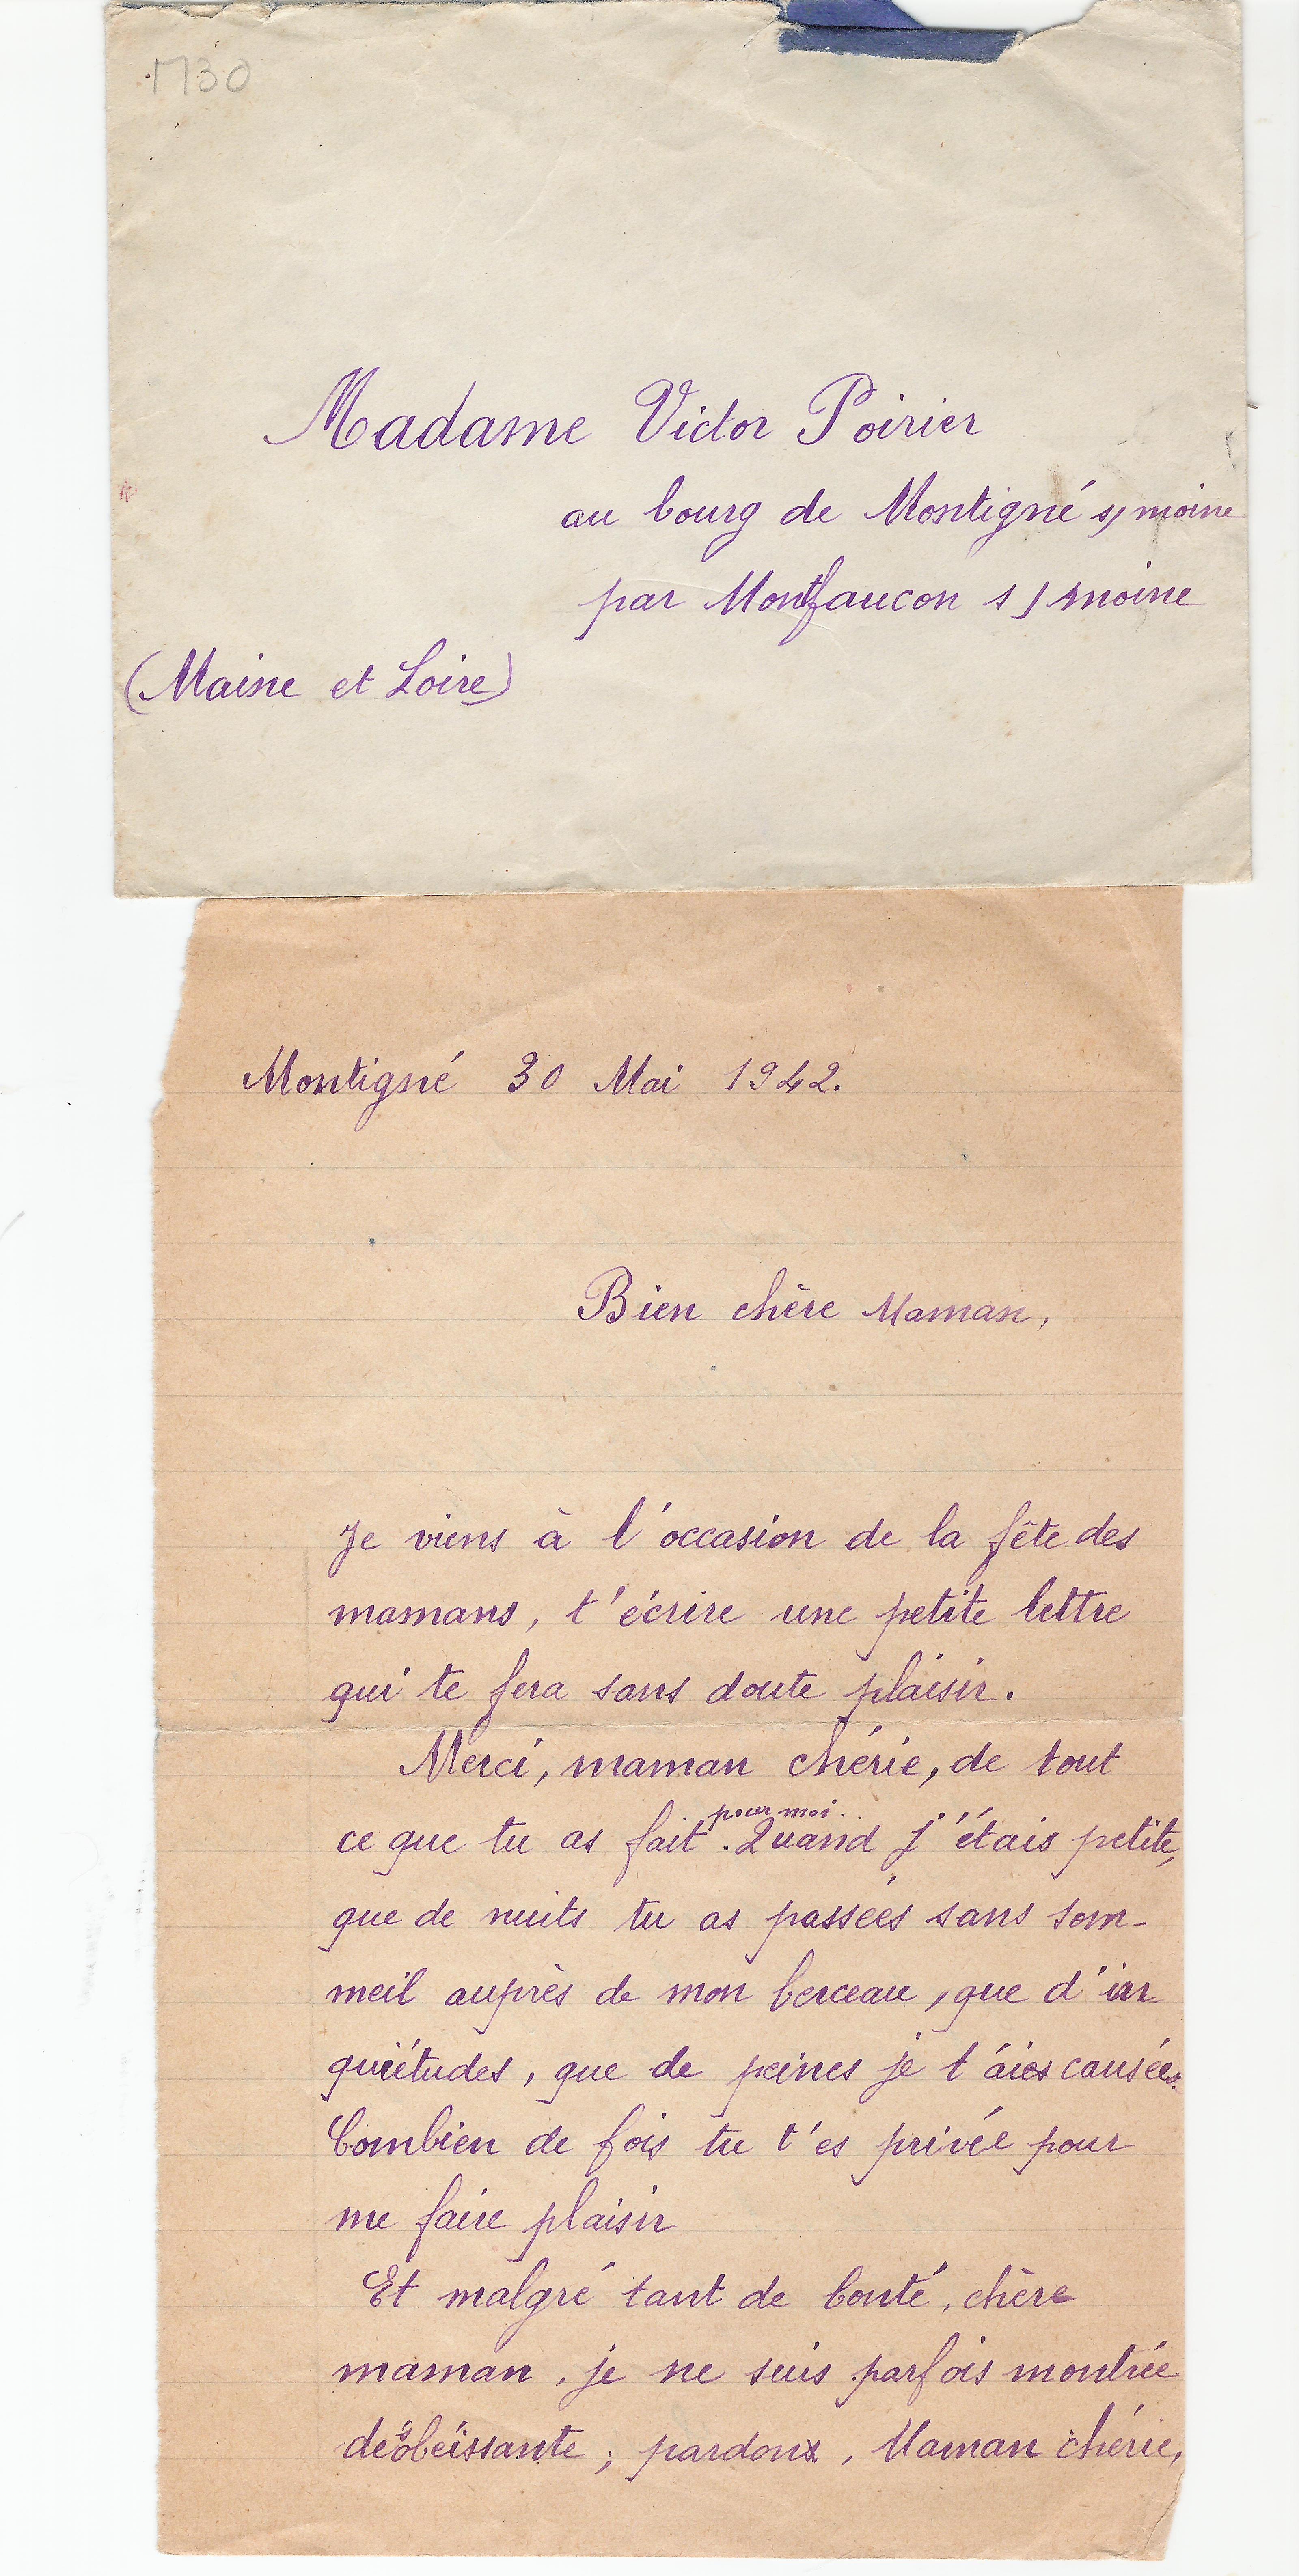 1730
Madame Victor Poirier
au bourg de Montigné s/moine
par Montfaucon s/moine
(Maine et Loire)
Montigné 30 Mai 1942.
Bien chère Maman,
Je viens à l'occasion de la fête des
mamans, t'écrire une petite lettre
qui te fera sans doute plaisir.
Merci, maman chérie, de tout
ce que tu as fait pour moi. Quand j'étais petite,
que de nuits tu as passées sans som-
meil auprès de mon berceau, que d'in
quiétudes, que de peines je t'ai causées.
Combien de fois tu t'es privée pour
me faire plaisir
Et malgré tant de bonté, chère
maman, je ne suis parfois montrée
desobéissante; pardon, Maman chérie,